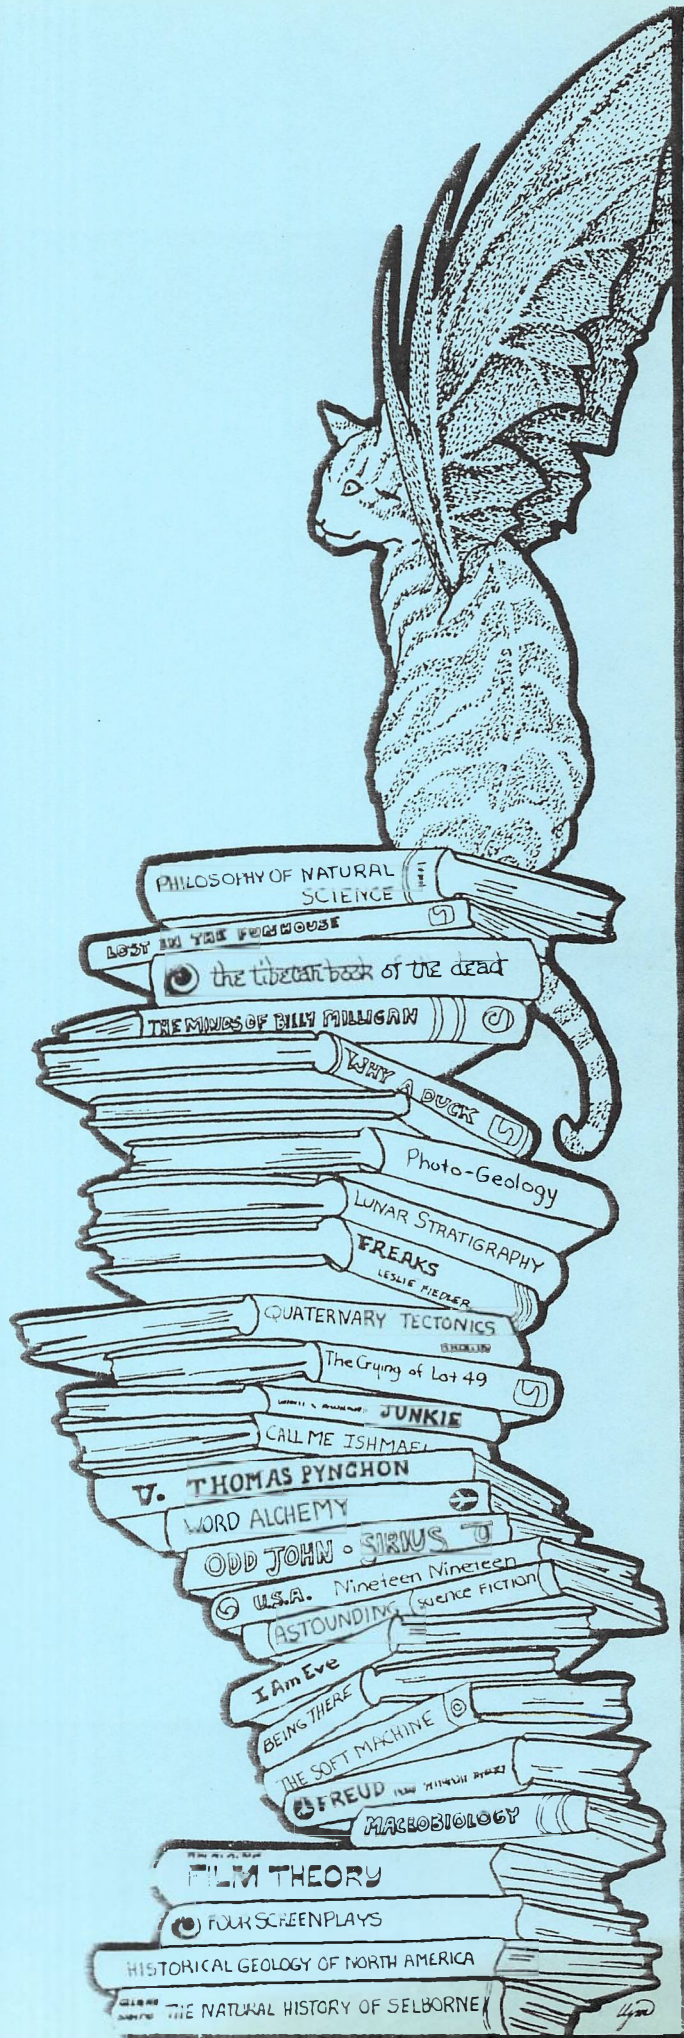 PHILOSOPHY OF NATURAL
SCIENCE
LOST IN THE FUNHOUSE
the tibetan book of the dead
THE MINDS OF BILLY MILLIGAN
WHY A DUCK
Photo-Geology
LUNAR STRATIGRAPHY
FREAKS
LESLIE FIEDLER
QUATERNARY TECTONICS
The Crying of Lot 49
JUNKIE
CALL ME ISHMAEL
V. THOMAS PYNCHON
WORD ALCHEMY
ODD JOHN • SIRIUS
U.S.A. Nineteen Nineteen
ASTOUNDING SCIENCE FICTION
I Am Eve
BEING THERE
THE SOFT MACHINE
FREUD
MACROBIOLOGY
FILM THEORY
FOUR SCREENPLAYS
HISTORICAL GEOLOGY OF NORTH AMERICA
THE NATURAL HISTORY OF SELBORNE